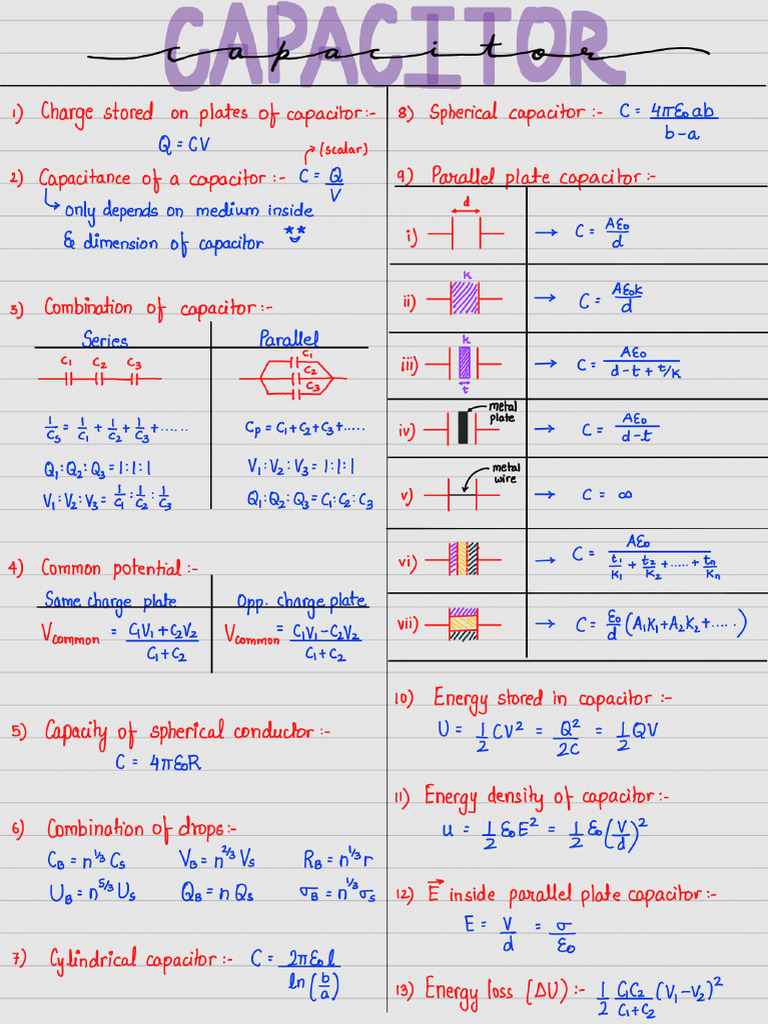 CAPACITOR
capacitor
1) Charge stored on plates of capacitor:-
Q = CV
2) Capacitance of a capacitor:- C = Q/V
(scalar)
↳ only depends on medium inside
& dimension of capacitor
3) Combination of capacitor:-
Series
Parallel
C₁ C₂ C₃
C₁
C₂
C₃
1/Cs = 1/C₁ + 1/C₂ + 1/C₃ + ......
Cp = C₁ + C₂ + C₃ + .....
Q₁:Q₂:Q₃ = 1:1:1
V₁:V₂:V₃ = 1:1:1
V₁:V₂:V₃ = 1/C₁ : 1/C₂ : 1/C₃
Q₁:Q₂:Q₃ = C₁:C₂:C₃
4) Common potential:-
Same charge plate
Opp. charge plate
Vcommon = (C₁V₁ + C₂V₂)/(C₁ + C₂)
Vcommon = (C₁V₁ - C₂V₂)/(C₁ + C₂)
5) Capacity of spherical conductor:-
C = 4πε₀R
6) Combination of drops:-
C_B = n^1/3 C_s V_B = n^2/3 V_s R_B = n^1/3 r
U_B = n^5/3 U_s Q_B = n Q_s σ_B = n^1/3 σ_s
7) Cylindrical capacitor:- C = 2πε₀l / ln(b/a)
8) Spherical capacitor:- C = 4πε₀ab / b-a
9) Parallel plate capacitor:-
d
i) → C = Aε₀/d
K
ii) → C = Aε₀K/d
K
iii) → C = Aε₀/(d-t+t/K)
t
metal
plate
iv) → C = Aε₀/(d-t)
metal
wire
v) → C = ∞
vi) → C = Aε₀/(t₁/K₁ + t₂/K₂ + ..... + tn/Kn)
vii) → C = ε₀/d (A₁K₁+A₂K₂+.....)
10) Energy stored in capacitor:-
U = 1/2 CV² = Q²/2C = 1/2 QV
11) Energy density of capacitor:-
u = 1/2 ε₀E² = 1/2 ε₀(V/d)²
12) E⃗ inside parallel plate capacitor:-
E = V/d = σ/ε₀
13) Energy loss (ΔU):- 1/2 C₁C₂/(C₁+C₂) (V₁-V₂)²